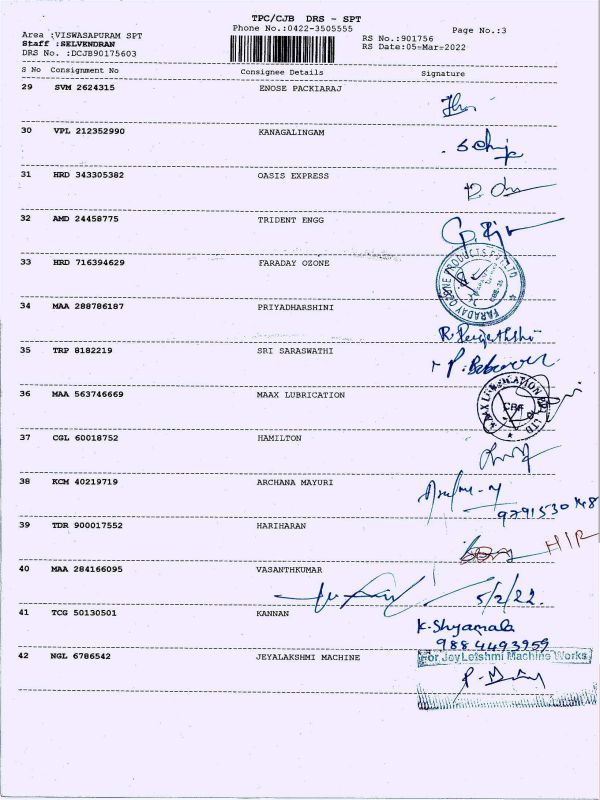 TPC/CJB DRS - SPT
Phone No.:0422-3505555
Page No.:3
Area :VISWASAPURAM SPT
RS No.:901756
Staff :SELVENDRAN
RS Date:05-Mar-2022
DRS No. :DCJB90175603
S No Consignment No Consignee Details Signature
29 SVM 2624315 ENOSE PACKIARAJ
30 VPL 212352990 KANAGALINGAM
31 HRD 343305382 OASIS EXPRESS
32 AMD 24458775 TRIDENT ENGG
33 HRD 716394629 FARADAY OZONE
FARADAY OZONE PRODUCTS PVT LTD
34 MAA 288786187 PRIYADHARSHINI
35 TRP 8182219 SRI SARASWATHI
36 MAA 563746669 MAAX LUBRICATION
MAAX LUBRICATION PVT LTD
CBE
37 CGL 60018752 HAMILTON
38 KCM 40219719 ARCHANA MAYURI
9791530148
39 TDR 900017552 HARIHARAN
H/R
40 MAA 284166095 VASANTHKUMAR
5/2/22.
41 TCG 50130501 KANNAN
K. Shyamala
9884493959
42 NGL 6786542 JEYALAKSHMI MACHINE
For Jey Letshmi Machine Works